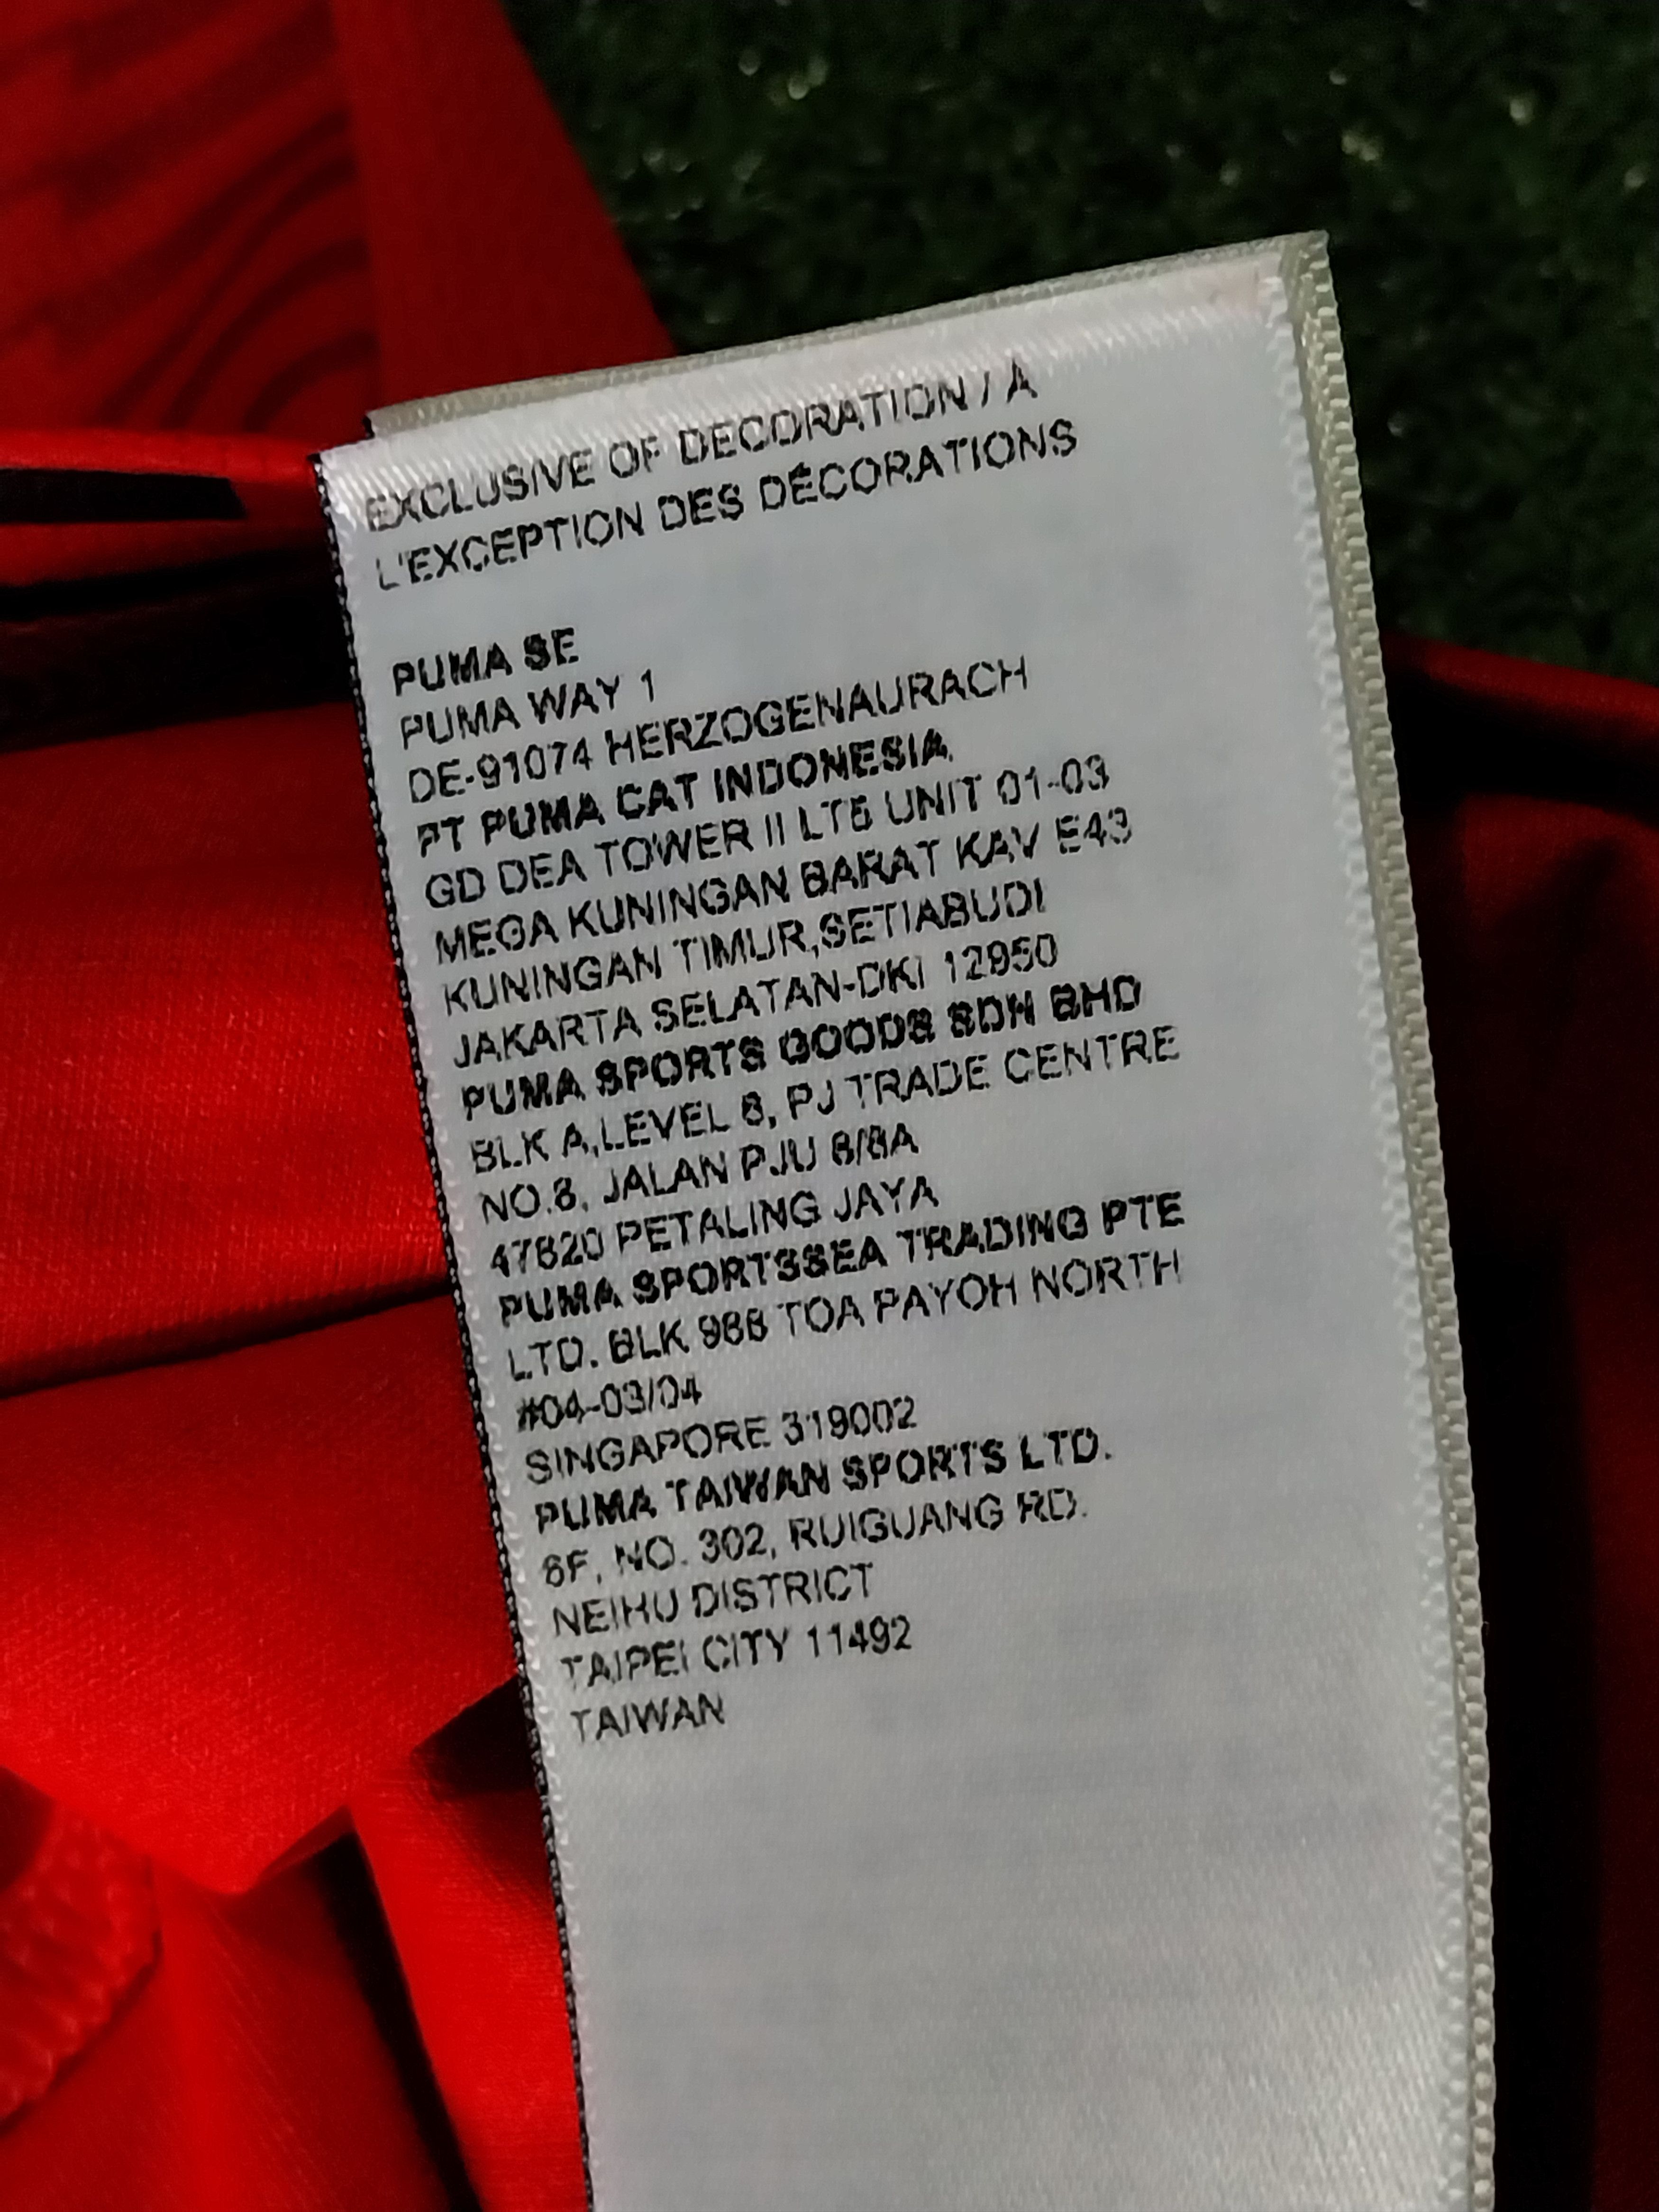 EXCLUSIVE OF DECORATION / À
L'EXCEPTION DES DÉCORATIONS
PUMA SE
PUMA WAY 1
DE-91074 HERZOGENAURACH
PT PUMA CAT INDONESIA
GD DEA TOWER II LT5 UNIT 01-03
MEGA KUNINGAN BARAT KAV E43
KUNINGAN TIMUR,SETIABUDI
JAKARTA SELATAN-DKI 12950
PUMA SPORTS GOODS SDN BHD
BLK A,LEVEL 8, PJ TRADE CENTRE
NO.8, JALAN PJU 8/8A
47820 PETALING JAYA
PUMA SPORTSSEA TRADING PTE
LTD. BLK 988 TOA PAYOH NORTH
#04-03/04
SINGAPORE 319002
PUMA TAIWAN SPORTS LTD.
6F, NO. 302, RUIGUANG RD.
NEIHU DISTRICT
TAIPEI CITY 11492
TAIWAN